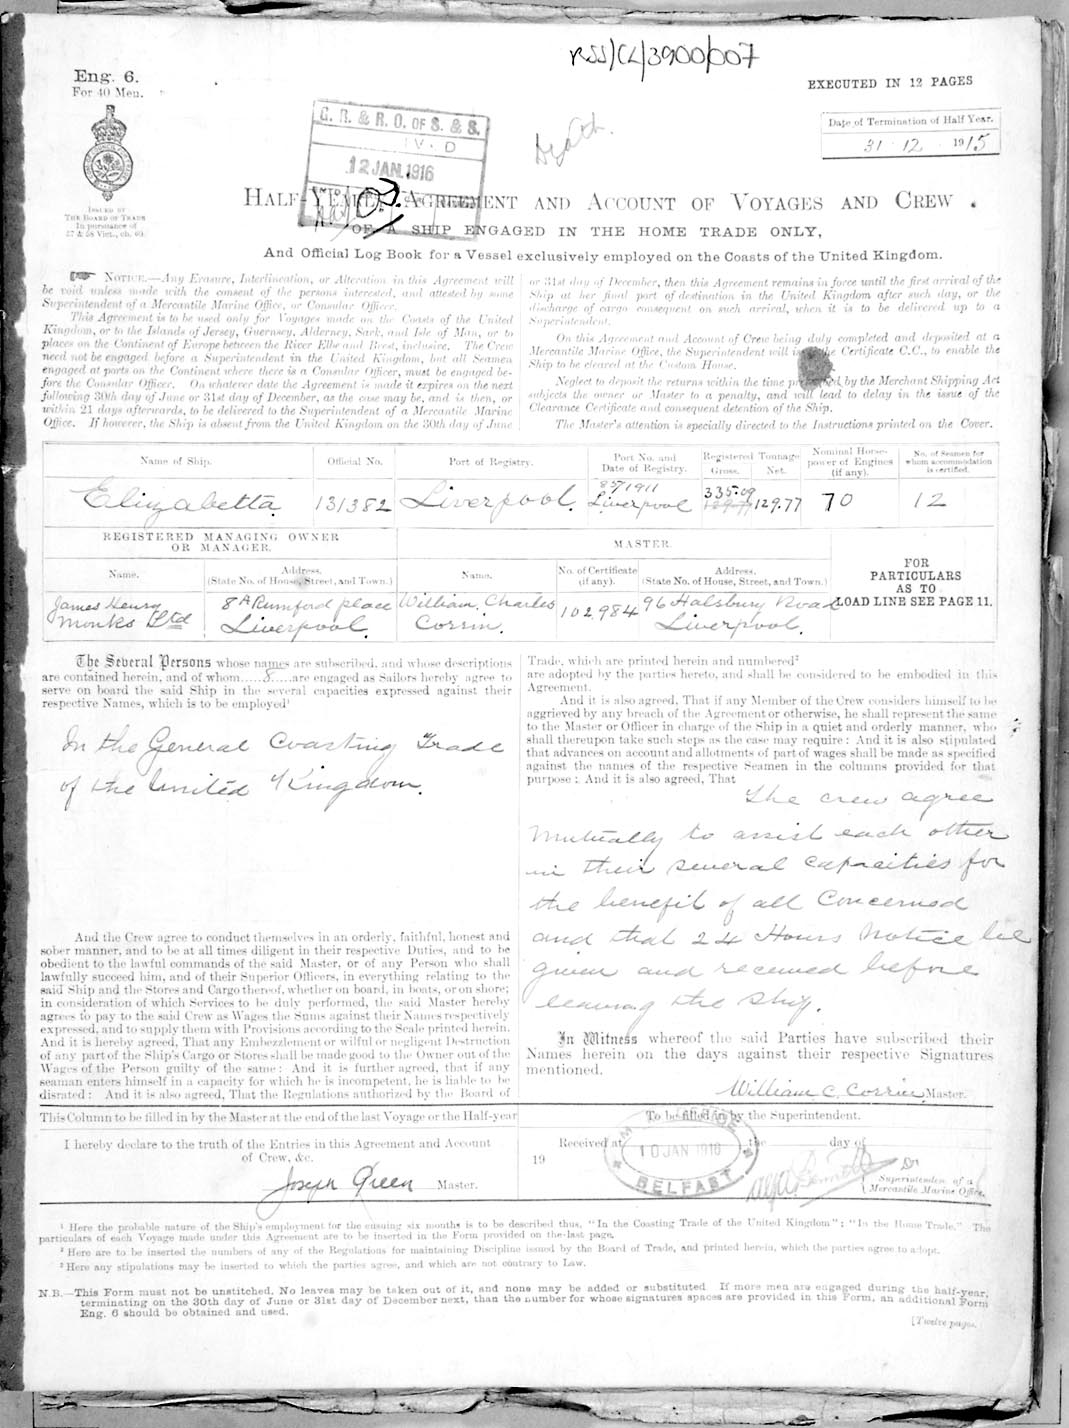 RSS/CL/3900/007
Eng. 6.
For 40 Men.
EXECUTED IN 12 PAGES
Date of Termination of Half Year.
31 · 12 · 1915
ISSUED BY
THE BOARD OF TRADE
In pursuance of
57 & 58 Vict., ch. 60.
G. R. & R. O. OF S. & S.
12 JAN. 1916
Death.
HALF-YEARLY AGREEMENT AND ACCOUNT OF VOYAGES AND CREW
OF A SHIP ENGAGED IN THE HOME TRADE ONLY,
And Official Log Book for a Vessel exclusively employed on the Coasts of the United Kingdom.
NOTICE.—Any Erasure, Interlineation, or Alteration in this Agreement will
be void unless made with the consent of the persons interested, and attested by some
Superintendent of a Mercantile Marine Office, or Consular Officer.
This Agreement is to be used only for Voyages made on the Coasts of the United
Kingdom, or to the Islands of Jersey, Guernsey, Alderney, Sark, and Isle of Man, or to
places on the Continent of Europe between the River Elbe and Brest, inclusive. The Crew
need not be engaged before a Superintendent in the United Kingdom, but all Seamen
engaged at ports on the Continent where there is a Consular Officer, must be engaged be-
fore the Consular Officer. On whatever date the Agreement is made it expires on the next
following 30th day of June or 31st day of December, as the case may be, and is then, or
within 21 days afterwards, to be delivered to the Superintendent of a Mercantile Marine
Office. If however, the Ship is absent from the United Kingdom on the 30th day of June
or 31st day of December, then this Agreement remains in force until the first arrival of the
Ship at her final port of destination in the United Kingdom after such day, or the
discharge of cargo consequent on such arrival, when it is to be delivered up to a
Superintendent.
On this Agreement and Account of Crew being duly completed and deposited at a
Mercantile Marine Office, the Superintendent will the Certificate C.C., to enable the
Ship to be cleared at the Custom House.
Neglect to deposit the returns within the time by the Merchant Shipping Act
subjects the owner or Master to a penalty, and will lead to delay in the issue of the
Clearance Certificate and consequent detention of the Ship.
The Master's attention is specially directed to the Instructions printed on the Cover.
Name of Ship. Official No. Port of Registry. Port No. and Date of Registry. Registered Tonnage Gross. Net. Nominal Horse-power of Engines (if any). No. of Seamen for whom accommodation is certified.
Elizabetta. 131382 Liverpool. 85/1911 Liverpool 335.09 129.77 129.77 70 12
REGISTERED MANAGING OWNER OR MANAGER. MASTER.
Name. Address. (State No. of House, Street, and Town.) Name. No. of Certificate (if any). Address. (State No. of House, Street, and Town.)
FOR PARTICULARS AS TO LOAD LINE SEE PAGE 11.
James Henry Monks Ltd 8A Rumford place Liverpool. William Charles Corrin. 102,984 96 Halsbury Road Liverpool.
The Several Persons whose names are subscribed, and whose descriptions
are contained herein, and of whom.....8.....are engaged as Sailors hereby agree to
serve on board the said Ship in the several capacities expressed against their
respective Names, which is to be employed¹
In the General Coasting Trade
of the United Kingdom.
And the Crew agree to conduct themselves in an orderly, faithful, honest and
sober manner, and to be at all times diligent in their respective Duties, and to be
obedient to the lawful commands of the said Master, or of any Person who shall
lawfully succeed him, and of their Superior Officers, in everything relating to the
said Ship and the Stores and Cargo thereof, whether on board, in boats, or on shore;
in consideration of which Services to be duly performed, the said Master hereby
agrees to pay to the said Crew as Wages the Sums against their Names respectively
expressed, and to supply them with Provisions according to the Scale printed herein.
And it is hereby agreed, That any Embezzlement or wilful or negligent Destruction
of any part of the Ship's Cargo or Stores shall be made good to the Owner out of the
Wages of the Person guilty of the same: And it is further agreed, that if any
seaman enters himself in a capacity for which he is incompetent, he is liable to be
disrated: And it is also agreed, That the Regulations authorized by the Board of
Trade, which are printed herein and numbered²
are adopted by the parties hereto, and shall be considered to be embodied in this
Agreement.
And it is also agreed, That if any Member of the Crew considers himself to be
aggrieved by any breach of the Agreement or otherwise, he shall represent the same
to the Master or Officer in charge of the Ship in a quiet and orderly manner, who
shall thereupon take such steps as the case may require: And it is also stipulated
that advances on account and allotments of part of wages shall be made as specified
against the names of the respective Seamen in the columns provided for that
purpose: And it is also agreed, That
The crew agree
mutually to assist each other
in their several capacities for
the benefit of all concerned
and that 24 Hours Notice be
given and received before
leaving the ship.
In Witness whereof the said Parties have subscribed their
Names herein on the days against their respective Signatures
mentioned.
William C. Corrin Master.
This Column to be filled in by the Master at the end of the last Voyage or the Half-year
I hereby declare to the truth of the Entries in this Agreement and Account
of Crew, &c.
Joseph Green Master.
To be filled in by the Superintendent.
Received at the day of
19
10 JAN 1916
BELFAST
Superintendent of a
Mercantile Marine Office.
¹ Here the probable nature of the Ship's employment for the ensuing six months is to be described thus, "In the Coasting Trade of the United Kingdom"; "In the Home Trade." The
particulars of each Voyage made under this Agreement are to be inserted in the Form provided on the last page.
² Here are to be inserted the numbers of any of the Regulations for maintaining Discipline issued by the Board of Trade, and printed herein, which the parties agree to adopt.
³ Here any stipulations may be inserted to which the parties agree, and which are not contrary to Law.
N.B.—This Form must not be unstitched. No leaves may be taken out of it, and none may be added or substituted If more men are engaged during the half-year,
terminating on the 30th day of June or 31st day of December next, than the number for whose signatures spaces are provided in this Form, an additional Form
Eng. 6 should be obtained and used.
[Twelve pages.